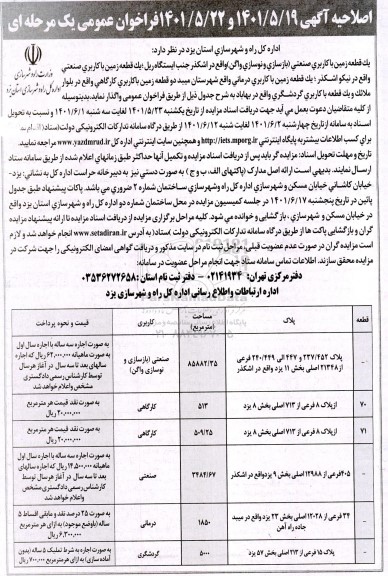 اصلاحیه آگهی ۱۴۰۱/۵/۱۹ و ۱۴۰۱/۵/۲۲ فراخوان عمومی یک مرحله ای
وزارت راه و شهرسازی
اداره کل راه و شهرسازی استان یزد در نظر دارد:
یک قطعه زمین با کاربری صنعتی (بازسازی و نوسازی واگن) واقع در اشکذر جنب ایستگاه ریل؛ یک قطعه زمین با کاربری صنعتی
واقع در نیکو اشکذر؛ یک قطعه زمین با کاربری درمانی واقع شهرستان میبد دو قطعه زمین با کاربری کارگاهی واقع در بلوار
ملائک و یک قطعه با کاربری گردشگری واقع در بهاباد به شرح جدول ذیل از طریق فراخوان عمومی واگذار نماید. بدینوسیله
از کلیه متقاضیان دعوت بعمل می آید جهت دریافت اسناد مزایده از تاریخ یکشنبه ۱۴۰۱/۵/۲۳ لغایت سه شنبه ۱۴۰۱/۶/۱ و نسبت به تحویل
اسناد به سامانه از تاریخ چهارشنبه ۱۴۰۱/۶/۲ لغایت شنبه ۱۴۰۱/۶/۱۲ از طریق درگاه سامانه تدارکات الکترونیکی دولت(ستاد) اقدام نمایند
برای کسب اطلاعات بیشتر به پایگاه اینترنتی http://iets.mporg.ir و همچنین سایت اینترنتی اداره کل www.yazdmrud.ir مراجعه نمایید.
تاریخ و مهلت تحویل اسناد: مزایده گر باید پس از دریافت اسناد مزایده و تکمیل آنها حداکثر طبق زمانهای اعلام شده از طریق سامانه ستاد
ارسال نمایند. بدیهی است ارائه اصل مدارک (پاکتهای الف، ب و ج) به صورت دستی نیز به دبیرخانه حراست اداره کل به نشانی: یزد-
خیابان کاشانی خیابان مسکن و شهرسازی اداره کل راه و شهرسازی ساختمان شماره ۲ ضروری می باشد. پاکات پیشنهاد طبق جدول
پائین در تاریخ پنجشنبه ۱۴۰۱/۶/۱۷ در جلسه کمیسیون مزایده در محل ساختمان شماره دو اداره کل راه و شهرسازی استان یزد واقع
در خیابان مسکن و شهرسازی، باز گشایی و خوانده می شود. کلیه مراحل برگزاری مزایده از دریافت اسناد مزایده تا ارائه پیشنهاد مزایده
گران و بازگشایی پاکت ها از طریق درگاه سامانه تدارکات الکترونیکی دولت (ستاد) به آدرس www.setadiran.ir انجام خواهد شد و لازم
است مزایده گران در صورت عدم عضویت قبلی، مراحل ثبت نام در سایت مذکور و دریافت گواهی امضای الکترونیکی را جهت شرکت در
مزایده محقق سازند. اطلاعات تماس سامانه ستاد جهت انجام مراحل عضویت در سامانه:
دفتر مرکزی تهران: ۰۲۱۴۱۹۳۴ - دفتر ثبت نام استان: ۰۳۵۳۶۲۷۲۶۵۸
اداره ارتباطات و اطلاع رسانی اداره کل راه و شهرسازی یزد
قطعه پلاک مساحت (مترمربع) کاربری قیمت و نحوه پرداخت
- پلاک ۲۳۷/۴۵۲ و ۴۴۷ الی ۲۴۰/۴۴۹ فرعی از ۲۱۳۴۸ اصلی بخش ۱۱ یزد واقع در اشکذر ۸۵۸۸۲/۳۵ صنعتی (بازسازی و نوسازی واگن) به صورت اجاره سه ساله با اجاره سال اول به صورت ماهیانه ۶۲,۰۰۰,۰۰۰ ریال که اجاره سالهای بعد تا سه سال در آغاز هر سال توسط کارشناس رسمی دادگستری مشخص و اعلام خواهد شد
۷۰ از پلاک ۸ فرعی از ۷۱۳ اصلی بخش ۸ یزد ۵۱۳ کارگاهی به صورت نقد قیمت هر مترمربع ۲۰,۰۰۰,۰۰۰ ریال
۷۱ از پلاک ۸ فرعی از ۷۱۳ اصلی بخش ۸ یزد ۵۰۹/۲۵ کارگاهی به صورت نقد قیمت هر مترمربع ۲۰,۰۰۰,۰۰۰ ریال
- ۴۰۵ فرعی از ۱۲۹۸۸ اصلی بخش ۹ یزد واقع در اشکذر ۳۴۸۴/۶۷ صنعتی به صورت اجاره سه ساله با اجاره سال اول ماهیانه ۱۴,۵۰۰,۰۰۰ ریال که اجاره سالهای بعد تا سه سال در آغاز هر سال توسط کارشناس رسمی دادگستری مشخص و اعلام خواهد شد
- ۳۴ فرعی از ۱۲۰۲۸ اصلی بخش ۲۳ یزد واقع در میبد جاده راه آهن ۱۸۵۰ درمانی به صورت ۲۵ درصد نقد و مابقی اقساط ۵ ساله (باوضع موجود) به ازای هر مترمربع ۶,۳۰۰,۰۰۰ ریال
- پلاک ۱۵ فرعی از ۲۱۳ اصلی بخش ۵۷ یزد ۵۰۰۰ گردشگری به صورت اجاره به شرط تملیک ۵ ساله (بدون آماده سازی) به ازای هر مترمربع ۷۰۰,۰۰۰ ریال